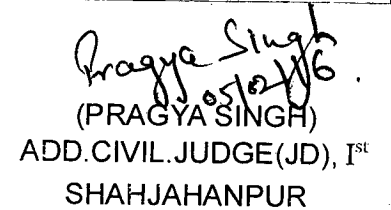 Pragya Singh
05/02/16.
(PRAGYA SINGH)
ADD.CIVIL.JUDGE(JD), Ist
SHAHJAHANPUR